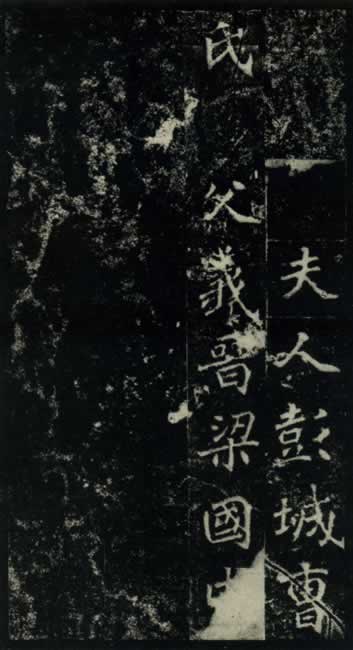 夫人彭城曹
氏 父義晉梁國